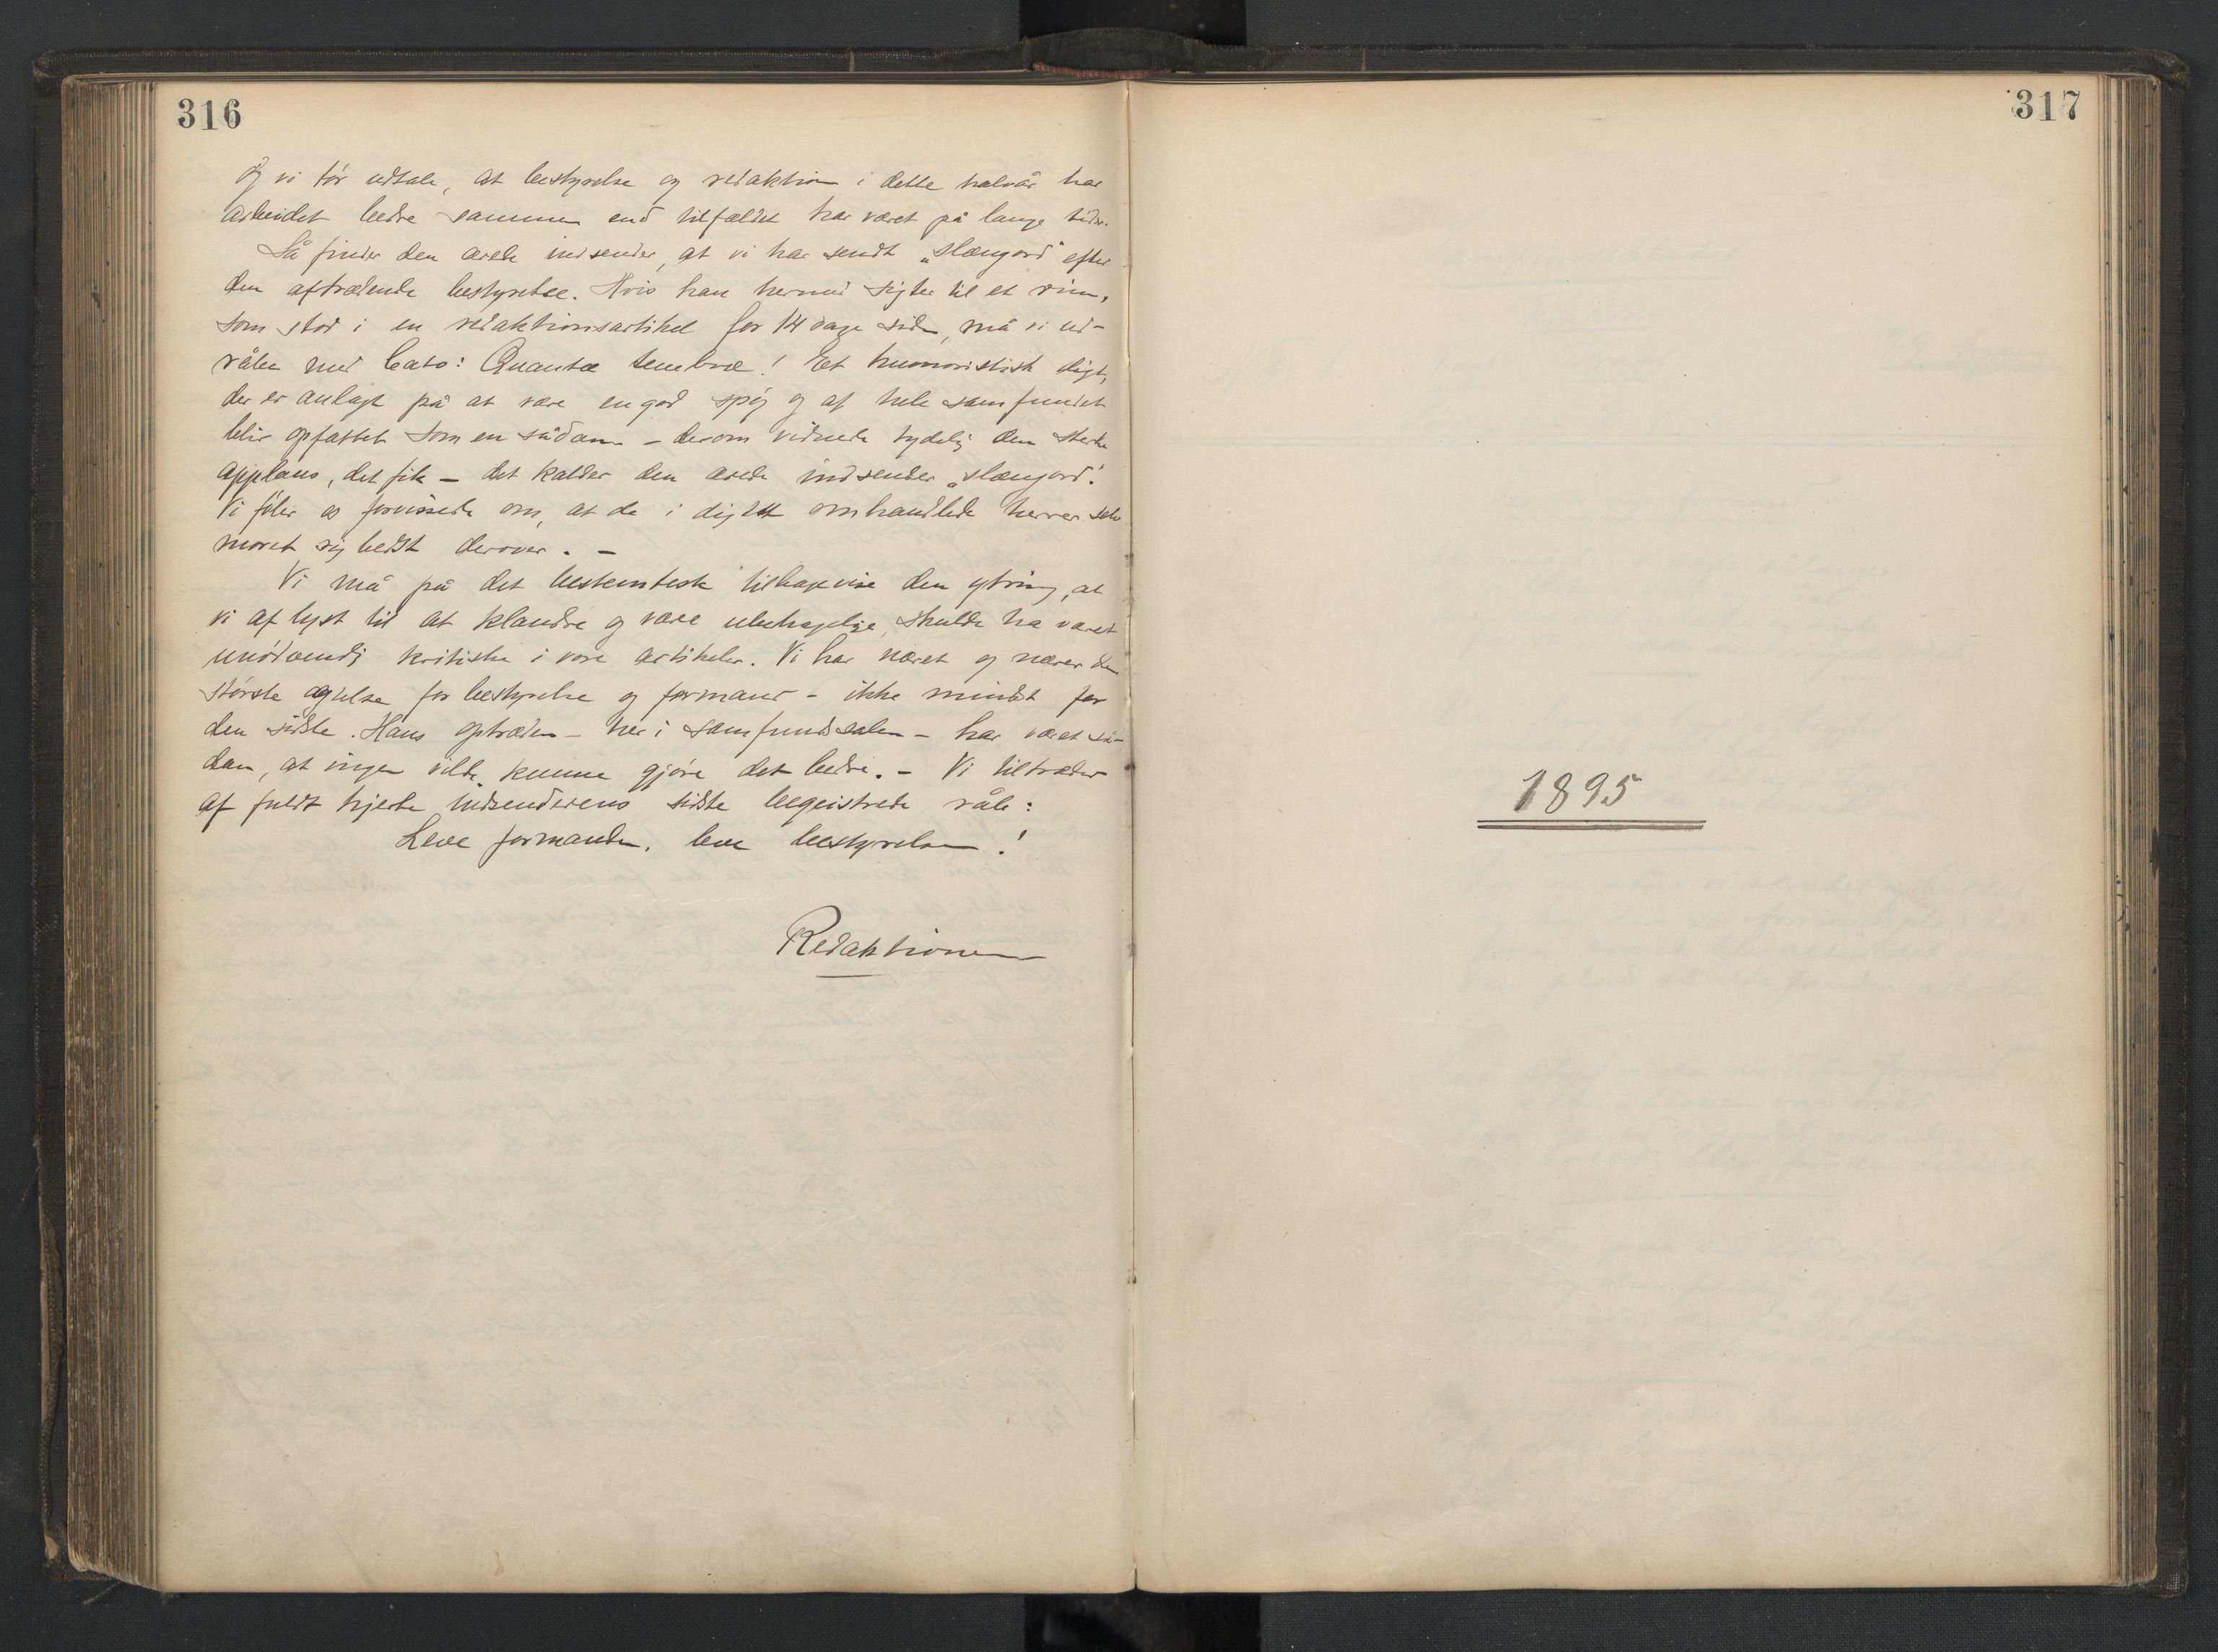 316
Og vi tör udtale, at bestyrelse og redaktion i dette halvår har
arbeidet bedre sammen end tilfældet har været på lange tider.
Så finder den ærede indsender, at vi har sendt „slængord" efter
den aftrædende bestyrelse. Hvis han hermed sigter til et rim,
som stod i en redaktionsartikel for 14 dage siden, må vi ud-
råbe med Cato: Quantæ tenebræ! Et humoristisk digt,
der er anlagt på at være en god spög og af hele samfundet
blir opfattet som en sådan – derom vidnede tydelig den sterke
applaus, det fik – det kalder den ærede indsender „slængord".
Vi föler os forvissede om, at de i digtet omhandlede herrer selv
moret sig bedst derover. –
Vi må på det bestemteste tilbagevise den ytring, at
vi af lyst til at klandre og være ubehagelige, skulde ha været
unödvendig kritiske i vore artikeler. Vi har næret og nærer den
störste agtelse for bestyrelse og formand – ikke mindst for
den sidste. Hans optræden – her i samfundssalen – har været så-
dan, at ingen vilde kunne gjöre det bedre. – Vi tiltræder
af fuldt hjerte indsenderens sidste begeistrede råb:
Leve formanden, leve bestyrelsen!
Redaktionen
317
1895